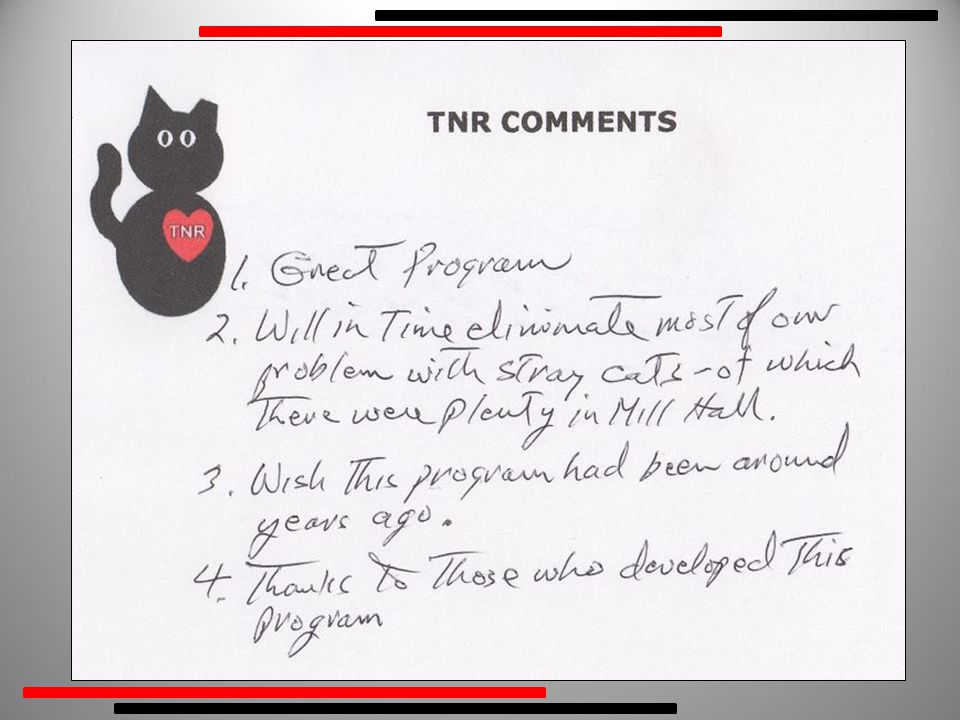 TNR COMMENTS
TNR
1. Great Program
2. Will in Time eliminate most of our
problem with stray cats - of which
There were plenty in Mill Hall.
3. Wish This program had been around
years ago.
4. Thanks To Those who developed This
program